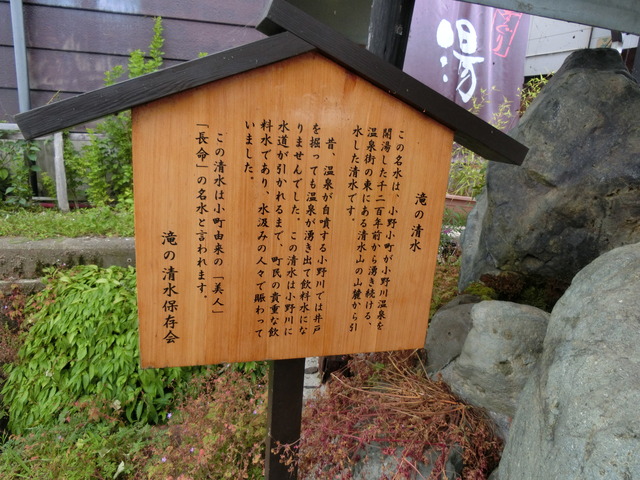 滝の清水
この名水は、小野小町が小野川温泉を
開湯した千二百年前から湧き続ける、
温泉街の東にある清水山の山麓から引
水した清水です。
昔、温泉が自噴する小野川では井戸
を掘っても温泉が湧き出て飲料水にな
りませんでした。この清水は小野川に
水道が引かれるまで、町民の貴重な飲
料水であり、水汲みの人々で賑わって
いました。
この清水は小町由来の「美人」
「長命」の名水と言われます。
滝の清水保存会
湯